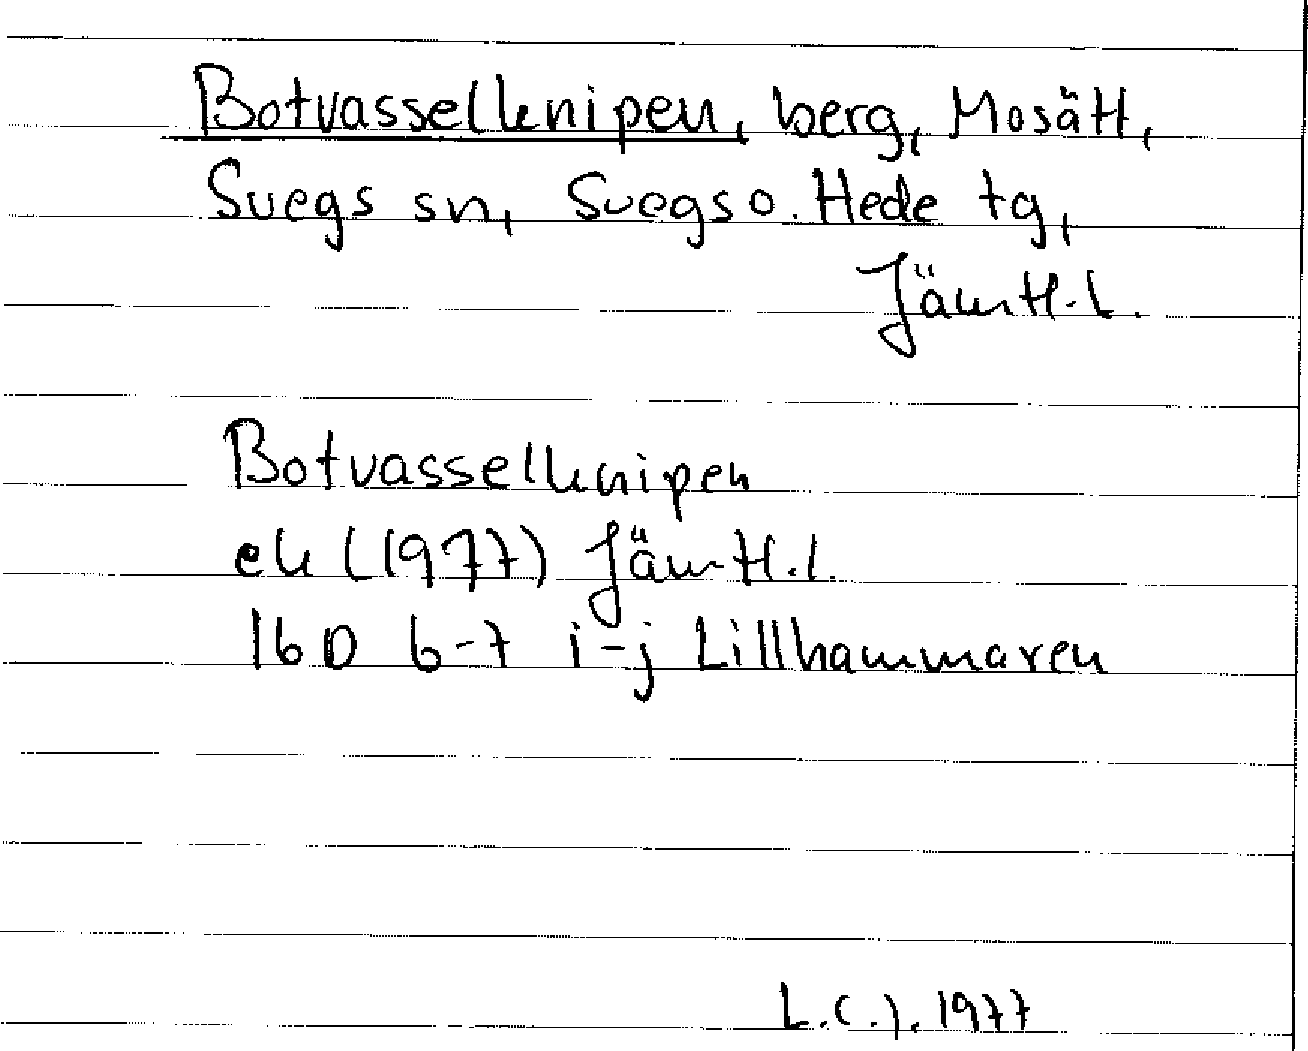 Botvasselknipen, berg, Mosätt,
Svegs sn, Svegs o. Hede tg,
Jämtl. l.
Botvasselknipen
ek (1977) Jämtl. l.
16D 6-7 i-j Lillhammaren
L.C.J. 1977